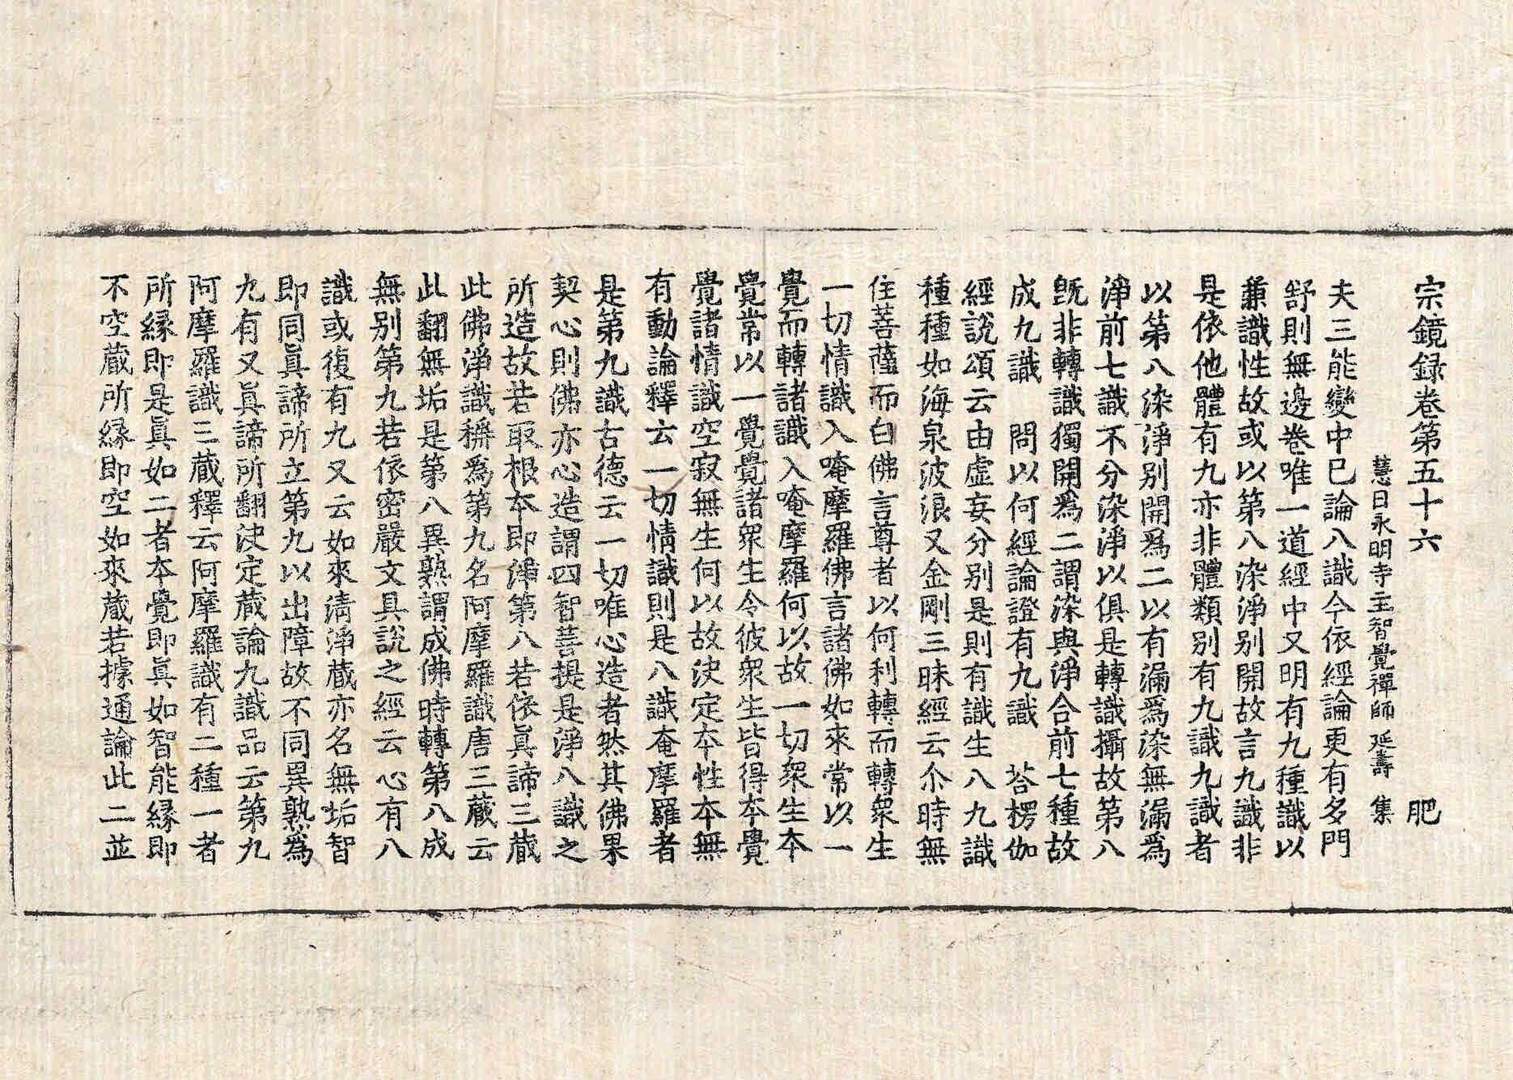 宗鏡録卷第五十六 肥
慧日永明寺主智覺禪師延壽 集
夫三能變中已論八識今依經論更有多門
舒則無邊卷唯一道經中又明有九種識以
兼識性故或以第八染淨別開故言九識非
是依他體有九亦非體類别有九識九識者
以第八染淨别開爲二以有漏爲染無漏爲
淨前七識不分染淨以俱是轉識攝故第八
旣非轉識獨開爲二謂染與淨合前七種故
成九識 問以何經論證有九識 荅楞伽
經說頌云由虛妄分别是則有識生八九識
種種如海泉波浪又金剛三昧經云尒時無
住菩薩而白佛言尊者以何利轉而轉衆生
一切情識入唵摩羅佛言諸佛如來常以一
覺而轉諸識入唵摩羅何以故一切衆生本
覺常以一覺覺諸衆生令彼衆生皆得本覺
覺諸情識空寂無生何以故決定本性本無
有動論釋云一切情識則是八識奄摩羅者
是第九識古德云一切唯心造者然其佛果
契心則佛亦心造謂四智菩提是淨八識之
所造故若取根本即淨第八若依眞諦三藏
此佛淨識稱爲第九名阿摩羅識唐三藏云
此翻無垢是第八異熟謂成佛時轉第八成
無别第九若依密嚴文具說之經云心有八
識或復有九又云如來清淨藏亦名無垢智
即同眞諦所立第九以出障故不同異熟爲
九有又眞諦所翻決定藏論九識品云第九
阿摩羅識三藏釋云阿摩羅識有二種一者
所緣即是眞如二者本覺即眞如智能緣即
不空藏所緣即空如來藏若據通論此二並